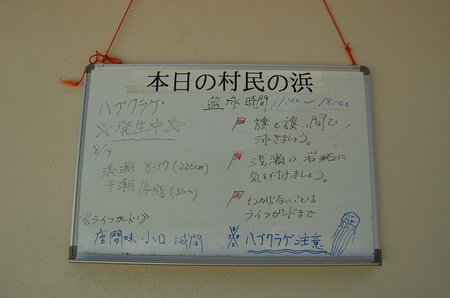 本日の村民の浜
ハブクラゲ
☆発生中☆
8/19
満潮 8:17 (220cm)
干潮 14:58 (35cm)
《ライフガード》
座間味 小口
遊泳時間 11:00～18:00
旗と旗の間で
泳ぎましょう。
浅瀬の岩石に
気を付けましょう。
わからないことは
ライフガードまで
※ハブクラゲ注意